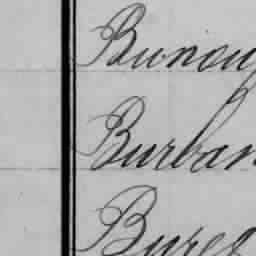 Bunou
Burban
Bures